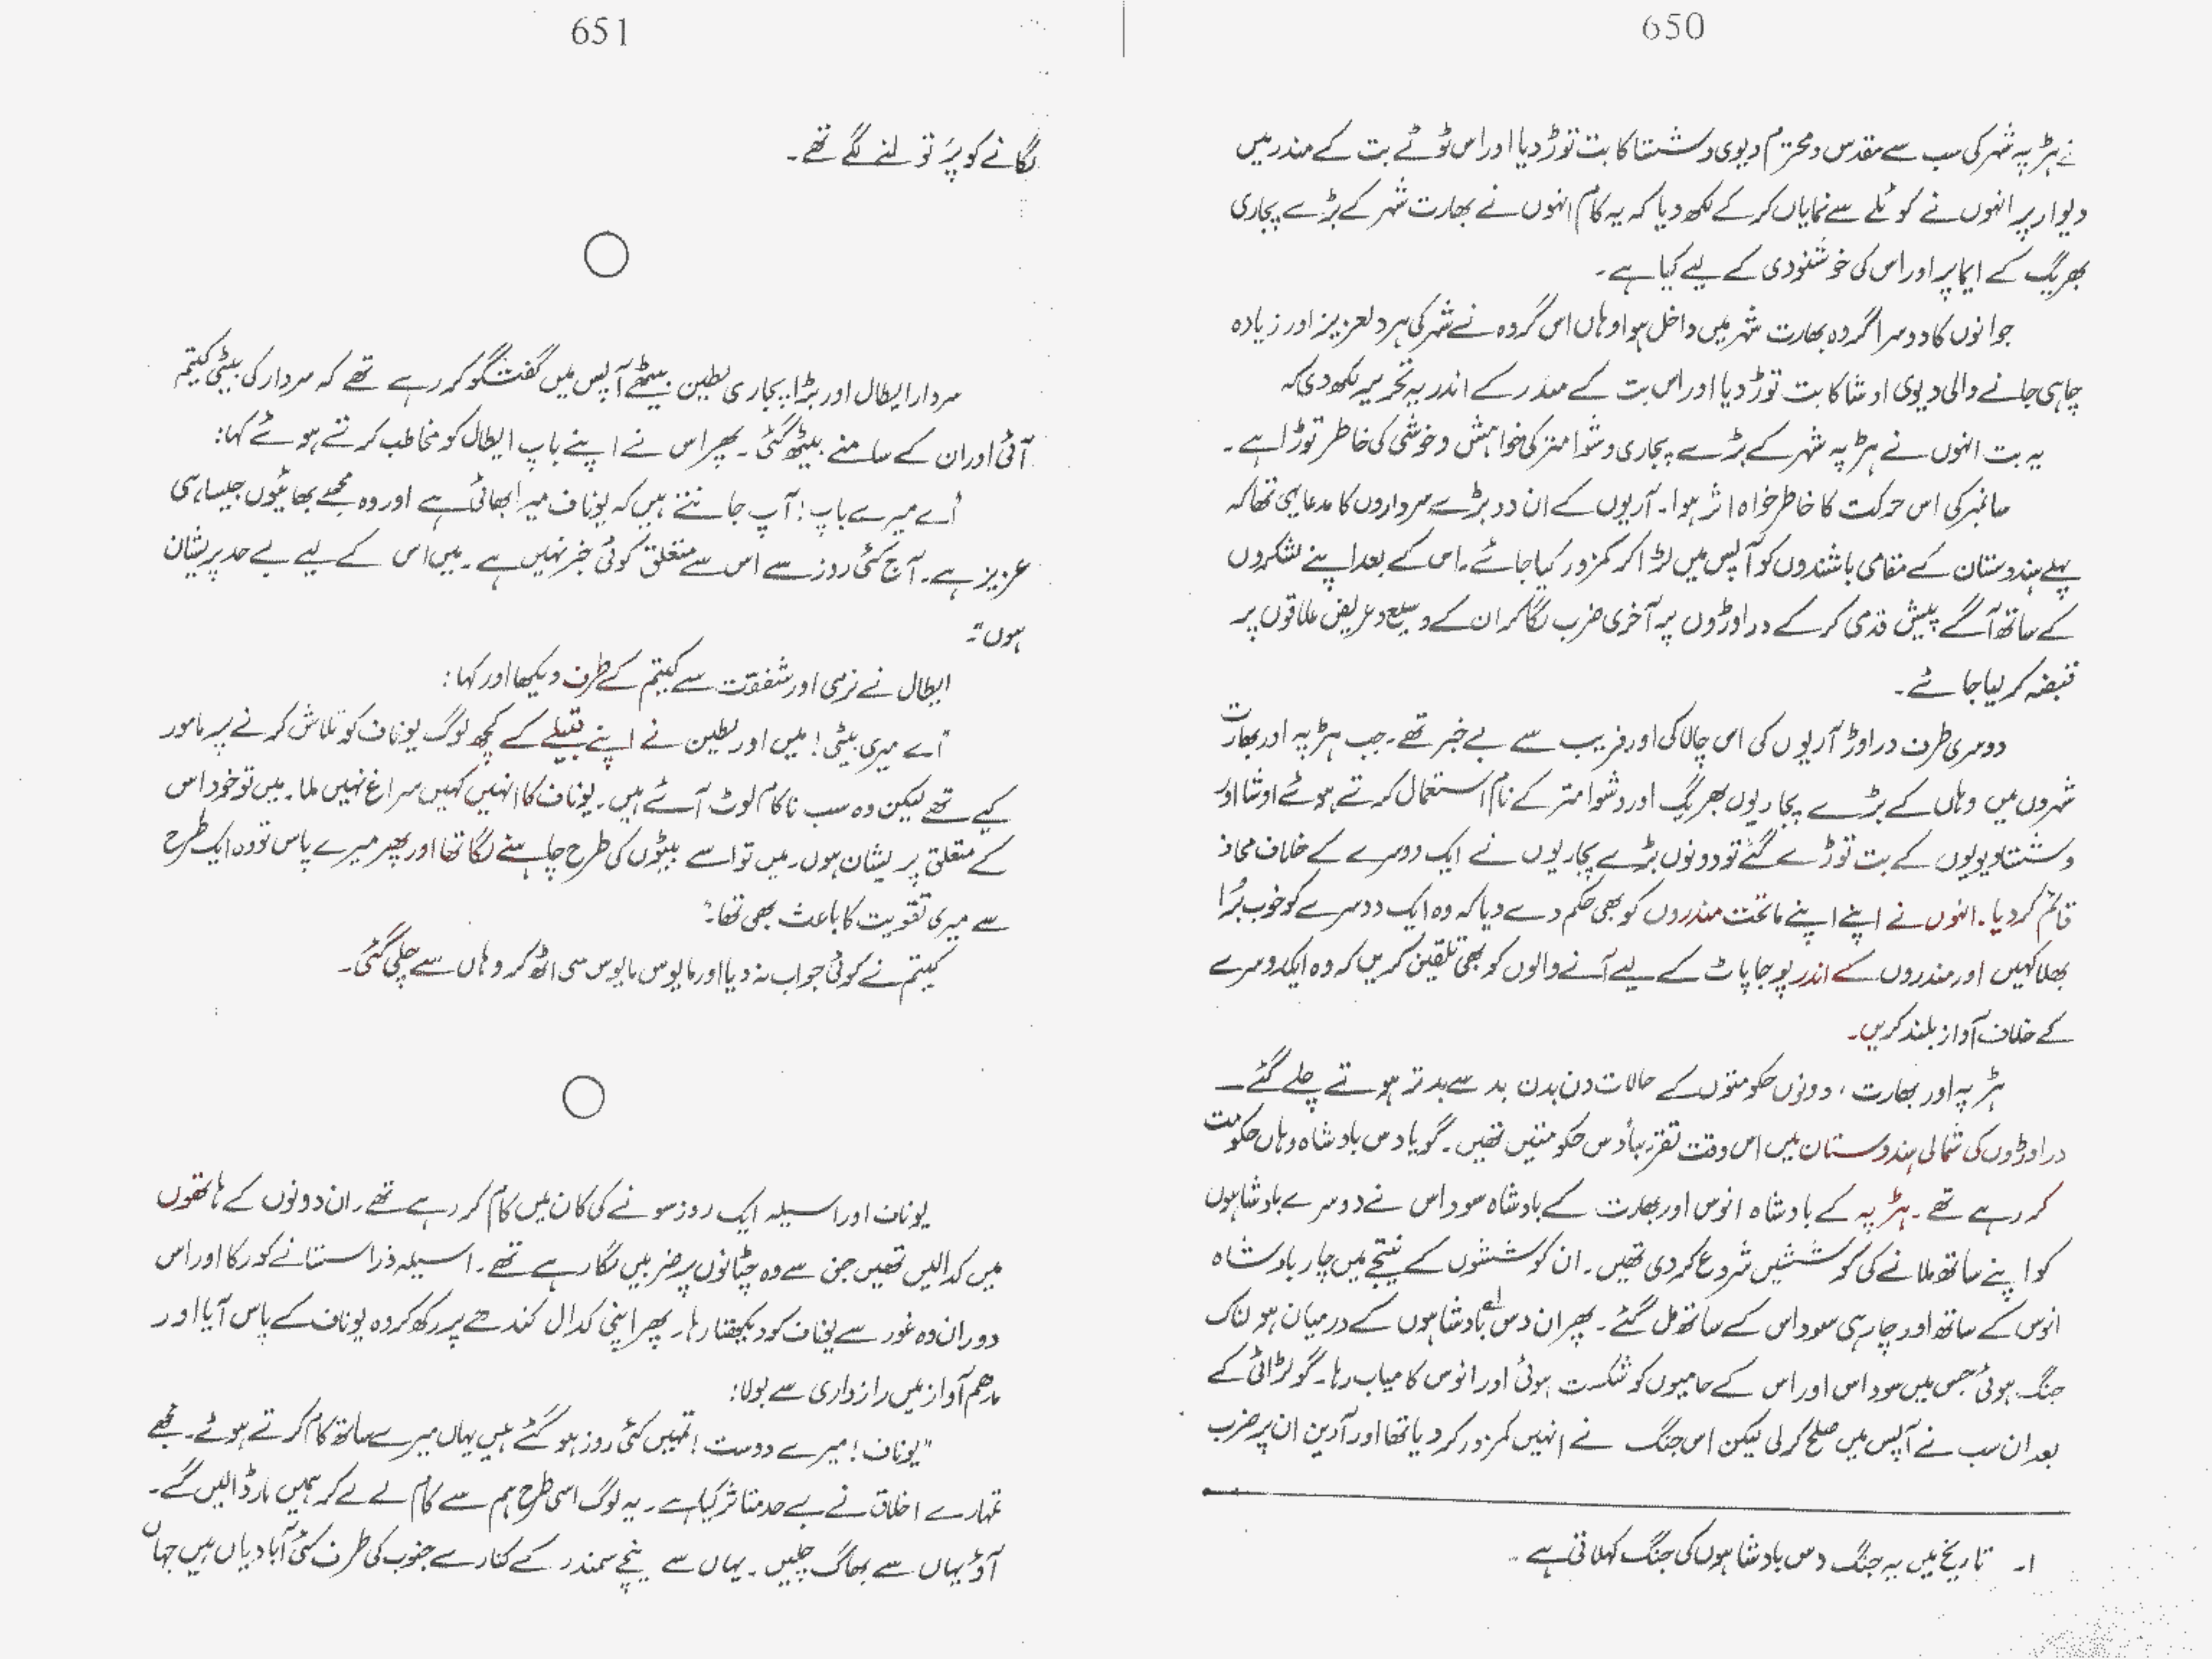 650
نے ہڑپہ شہر کی سب سے مقدس و محترم دیوی وششتا کا بت توڑ دیا اور اس ٹوٹے بت کے مندر میں
دیوار پر انہوں نے کوئلے سے نمایاں کر کے لکھ دیا کہ یہ کام انہوں نے بھارت شہر کے بڑے پجاری
بھریگ کے ایما پر اور اس کی خوشنودی کے لیے کیا ہے۔
جوانوں کا دوسرا گروہ بھارت شہر میں داخل ہوا وہاں اس گروہ نے شہر کی ہر دلعزیز اور زیادہ
چاہی جانے والی دیوی اوشا کا بت توڑ دیا اور اس بت کے مندر کے اندر یہ تحریر لکھ دی کہ
یہ بت انہوں نے ہڑپہ شہر کے بڑے پجاری وشوامتر کی خواہش و خوشی کی خاطر توڑا ہے۔
سانبر کی اس حرکت کا خاطر خواہ اثر ہوا۔ آریوں کے ان دو بڑے سرداروں کا مدعا ہی تھا کہ
پہلے ہندوستان کے مقامی باشندوں کو آپس میں لڑا کر کمزور کیا جائے۔ اس کے بعد اپنے لشکروں
کے ساتھ آگے پیش قدمی کر کے دراوڑوں پر آخری ضرب لگا کر ان کے وسیع و عریض علاقوں پر
قبضہ کر لیا جائے۔
دوسری طرف دراوڑ آریوں کی اس چالاکی اور فریب سے بے خبر تھے۔ جب ہڑپہ اور بھارت
شہروں میں وہاں کے بڑے پجاریوں بھریگ اور وشوامتر کے نام استعمال کرتے ہوئے اوشا اور
وششتا دیویوں کے بت توڑے گئے تو دونوں بڑے پجاریوں نے ایک دوسرے کے خلاف محاذ
قائم کر دیا۔ انہوں نے اپنے اپنے ماتحت مندروں کو بھی حکم دے دیا کہ وہ ایک دوسرے کو خوب بُرا
بھلا کہیں اور مندروں کے اندر پوجا پاٹ کے لیے آنے والوں کو بھی تلقین کریں کہ وہ ایک دوسرے
کے خلاف آواز بلند کریں۔
ہڑپہ اور بھارت، دونوں حکومتوں کے حالات دن بدن بد سے بدتر ہوتے چلے گئے۔
دراوڑوں کی شمالی ہندوستان میں اس وقت تقریباً دس حکومتیں تھیں۔ گویا دس بادشاہ وہاں حکومت
کر رہے تھے۔ ہڑپہ کے بادشاہ انوس اور بھارت کے بادشاہ سوداس نے دوسرے بادشاہوں
کو اپنے ساتھ ملانے کی کوششیں شروع کر دی تھیں۔ ان کوششوں کے نتیجے میں چار بادشاہ
انوس کے ساتھ اور چار ہی سوداس کے ساتھ مل گئے۔ پھر ان دس بادشاہوں کے درمیان ہولناک
جنگ ہوئی جس میں سوداس اور اس کے حامیوں کو شکست ہوئی اور انوس کامیاب رہا۔ گو لڑائی کے
بعد ان سب نے آپس میں صلح کر لی لیکن اس جنگ نے انہیں کمزور کر دیا تھا اور آرین ان پر ضرب
۱۔ تاریخ میں یہ جنگ دس بادشاہوں کی جنگ کہلاتی ہے۔
651
لگانے کو پَر تولنے لگے تھے۔
سردار ایطال اور بڑا پجاری لطین بیٹھے آپس میں گفتگو کر رہے تھے کہ سردار کی بیٹی کیتم
آئی اور ان کے سامنے بیٹھ گئی۔ پھر اس نے اپنے باپ ایطال کو مخاطب کرتے ہوئے کہا:
"اے میرے باپ! آپ جانتے ہیں کہ یوناف میرا بھائی ہے اور وہ مجھے بھائیوں جیسا ہی
عزیز ہے۔ آج کئی روز سے اس سے متعلق کوئی خبر نہیں ہے۔ میں اس کے لیے بے حد پریشان
ہوں"۔
ایطال نے نرمی اور شفقت سے کیتم کے طرف دیکھا اور کہا:
"اے میری بیٹی! میں اور لطین نے اپنے قبیلے کے کچھ لوگ یوناف کو تلاش کرنے پر مامور
کیے تھے لیکن وہ سب ناکام لوٹ آئے ہیں۔ یوناف کا انہیں کہیں سراغ نہیں ملا۔ میں تو خود اس
کے متعلق پریشان ہوں۔ میں تو اسے بیٹوں کی طرح چاہنے لگا تھا اور پھر میرے پاس تو وہ ایک طرح
سے میری تقویت کا باعث بھی تھا۔"
کیتم نے کوئی جواب نہ دیا اور مایوس مایوس سی اٹھ کر وہاں سے چلی گئی۔
یوناف اور اسیلہ ایک روز سونے کی کان میں کام کر رہے تھے۔ ان دونوں کے ہاتھوں
میں کدالیں تھیں جن سے وہ چٹانوں پر ضربیں لگا رہے تھے۔ اسیلہ ذرا ستانے کو رکا اور اس
دوران وہ غور سے یوناف کو دیکھتا رہا۔ پھر اپنی کدال کندھے پر رکھ کر وہ یوناف کے پاس آیا اور
مدھم آواز میں رازداری سے بولا:
"یوناف! میرے دوست! تمہیں کئی روز ہو گئے ہیں یہاں میرے ساتھ کام کرتے ہوئے۔ مجھے
تمہارے اخلاق نے بے حد متاثر کیا ہے۔ یہ لوگ اسی طرح ہم سے کام لے لے کر ہمیں مار ڈالیں گے۔
آؤ یہاں سے بھاگ چلیں۔ یہاں سے نیچے سمندر کے کنارے جنوب کی طرف کئی آبادیاں ہیں جہاں